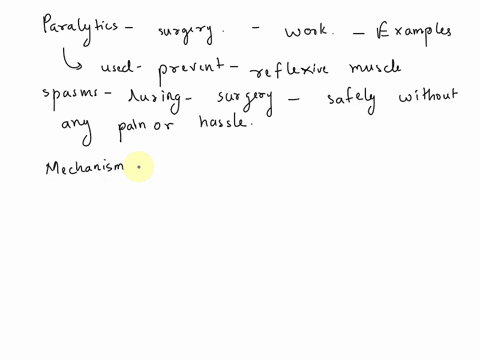 Paralytics - surgery. - work. - Examples
↳ used- prevent - reflexive muscle
spasms - during - surgery - safely without
any pain or hassle.
Mechanism